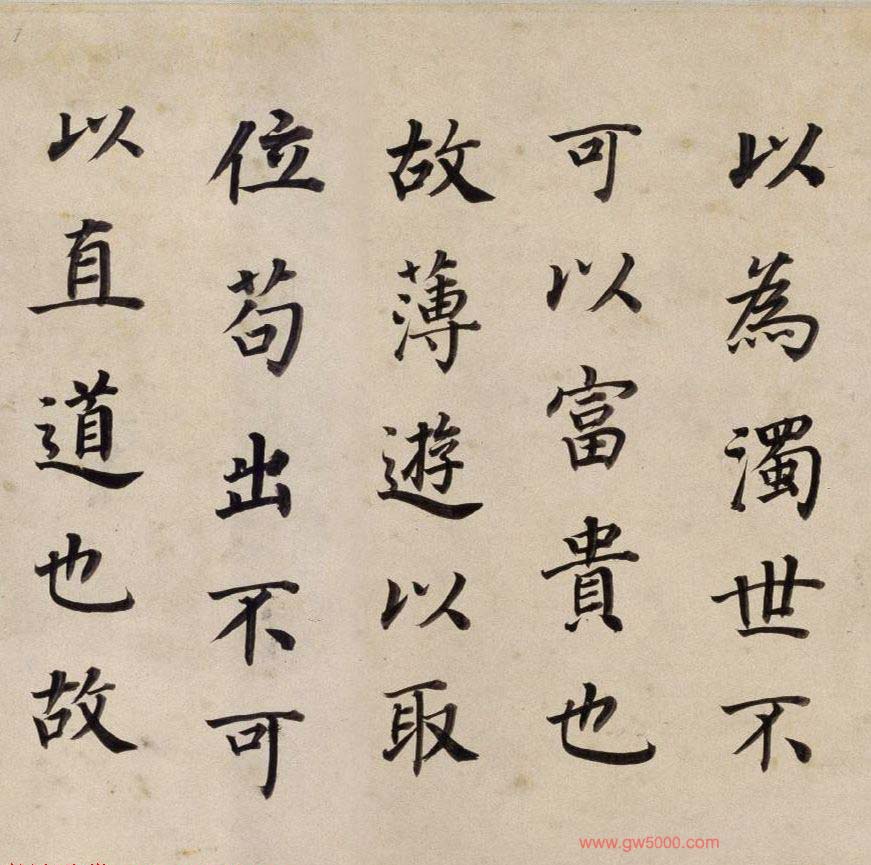 以為濁世不
可以富貴也
故薄遊以取
位苟出不可
以直道也故
www.gw5000.com